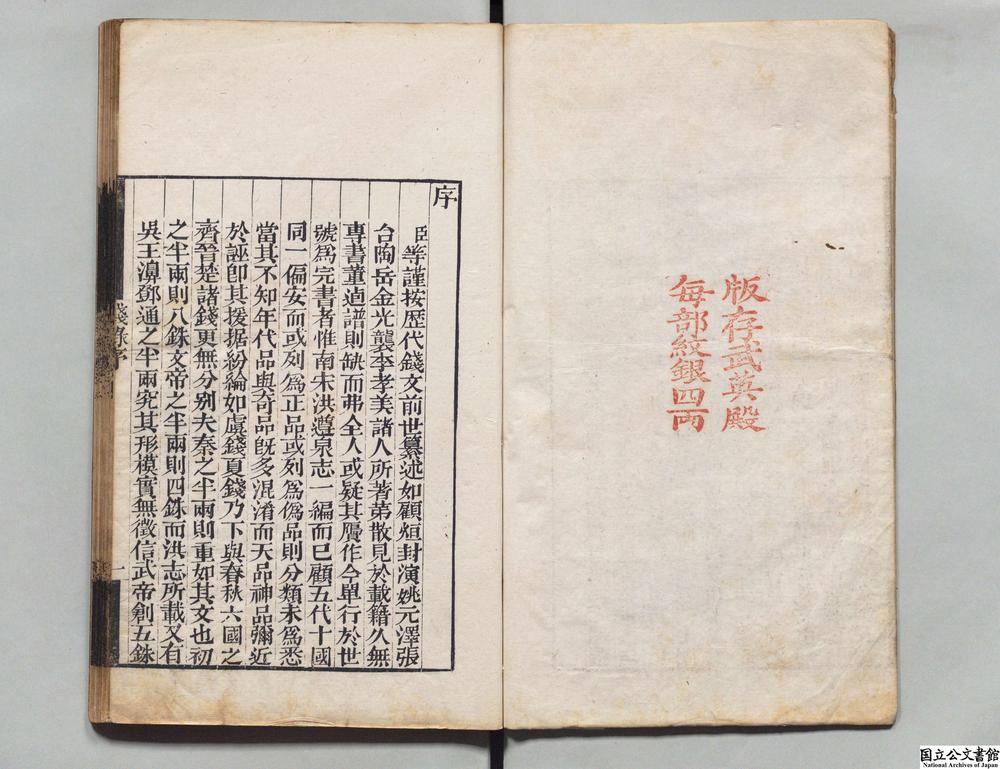 版存武英殿
每部紋銀四兩
序
臣等謹按歷代錢文前世纂述如顧烜封演姚元澤張
台陶岳金光襲李孝美諸人所著第散見於載籍久無
專書董逌譜則缺而弗全人或疑其贋作今單行於世
號為完書者惟南宋洪遵泉志一編而已顧五代十國
同一偏安而或列為正品或列為偽品則分類未為悉
當其不知年代品與奇品旣多混淆而天品神品彌近
於誣卽其援据紛綸如虞錢夏錢乃下與春秋六國之
齊晉楚諸錢更無分別夫秦之半兩則重如其文也初
之半兩則八銖文帝之半兩則四銖而洪志所載又有
吳王濞鄧通之半兩究其形模實無徵信武帝創五銖
錢錄序
一
国立公文書館
National Archives of Japan